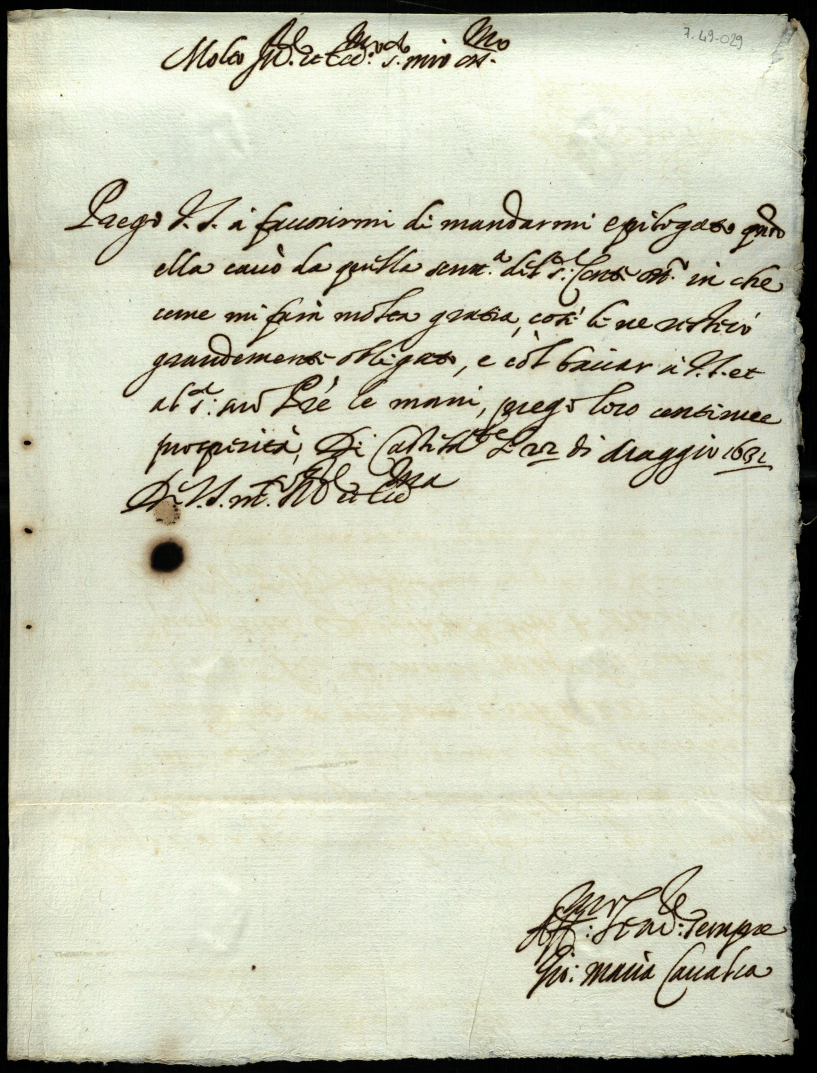 7.49-029
Molto Ill.re et Ecc.mo s.r mio oss.mo
Prego V.S. à favorirmi di mandarmi epilogato quãto
ella cavò da quella scritt.a del s.r Conte in che
come mi farà molta grazia, così le ne resterò
grandemente obligato, e cõ'l baciar à V.S. et
al s.r suo Pr̃e le mani, prego loro continue
prosperità, Di li 22 di Maggio 1631
Di V.S. m.to Ill.re et Ecc.ma
Aff.mo Ser.re sempre
Gio: Maria